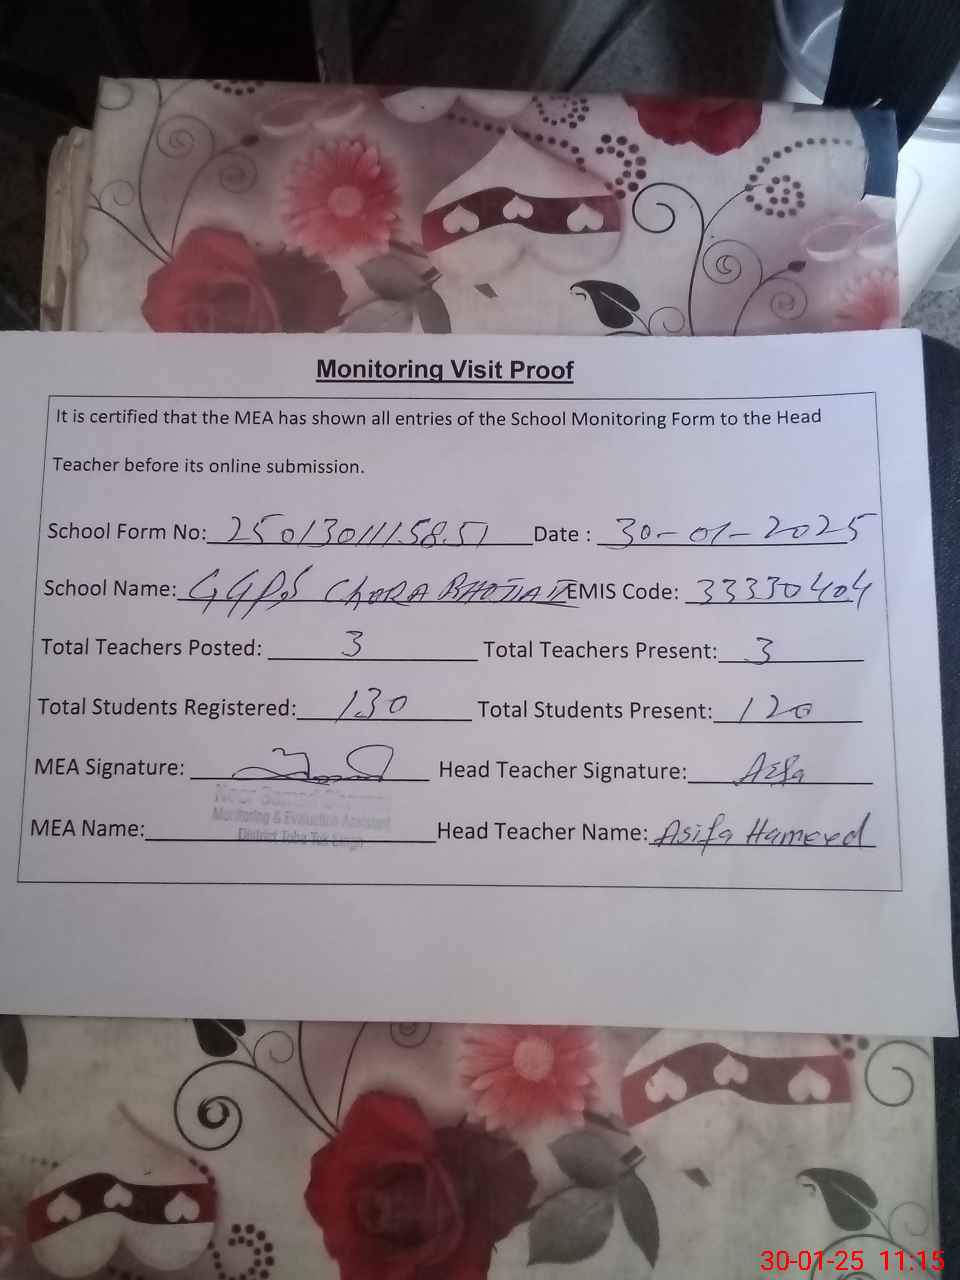 Monitoring Visit Proof
It is certified that the MEA has shown all entries of the School Monitoring Form to the Head
Teacher before its online submission.
School Form No: 25013011158.51 Date : 30-01-2025
School Name: GGPS CHORA EMIS Code: 33330404
Total Teachers Posted: 3 Total Teachers Present: 3
Total Students Registered: 130 Total Students Present: 120
MEA Signature: Head Teacher Signature: Asifa
Monitoring & Evaluation Assistant
MEA Name: District Toba Tek Singh Head Teacher Name: Asifa Hameed
30-01-25 11:15